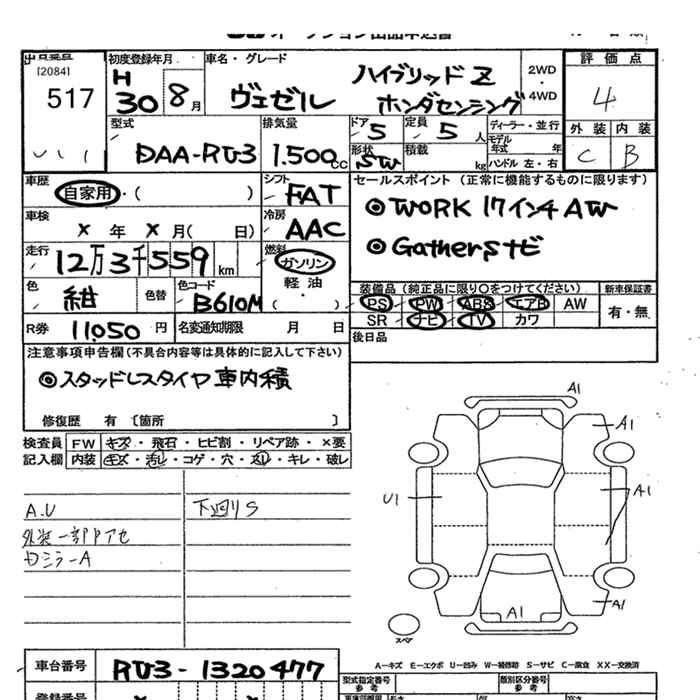 出品番号 [2084]
517
初度登録年月
H
30 8月
車名・グレード
ハイブリッド Z
ヴェゼル ホンダセンシング
2WD
・
4WD
評価点
4
外装 内装
C B
型式
DAA-RU3
排気量
1.500 cc
ドア 5
形状 SW
定員 5 人
積載 kg
ディーラー・並行
モデル年式 年
ハンドル 左・右
車歴
自家用・( )
車検
× 年 × 月( 日)
走行
12万3千559 km
色
紺
色替
色コード
B610M
R券 11050 円
名変通知期限 月 日
シフト
FAT
冷房
AAC
燃料
ガソリン
軽油
( )
セールスポイント (正常に機能するものに限ります)
◎WORK 17インチAW
◎Gathersナビ
装備品(純正品に限り○をつけてください)
PS PW ABS エアB AW
SR ナビ TV カワ
新車保証書
有・無
後日品
注意事項申告欄(不具合内容等は具体的に記入して下さい)
◎スタッドレスタイヤ車内積
修復歴 有 〔箇所 〕
検査員 FW キズ・飛石・ヒビ割・リペア跡・×要
記入欄 内装 キズ・汚レ・コゲ・穴・スレ・キレ・破レ
A.U
下廻りS
外装一部アセ
ミラーA
A1
A1
U1
A1
A1
A1
スペア
A-キズ E-エクボ U-凹み W-補修跡 S-サビ C-腐食 XX-交換済
車台番号 RU3-1320477
型式指定番号
参考
類別区分番号
参考